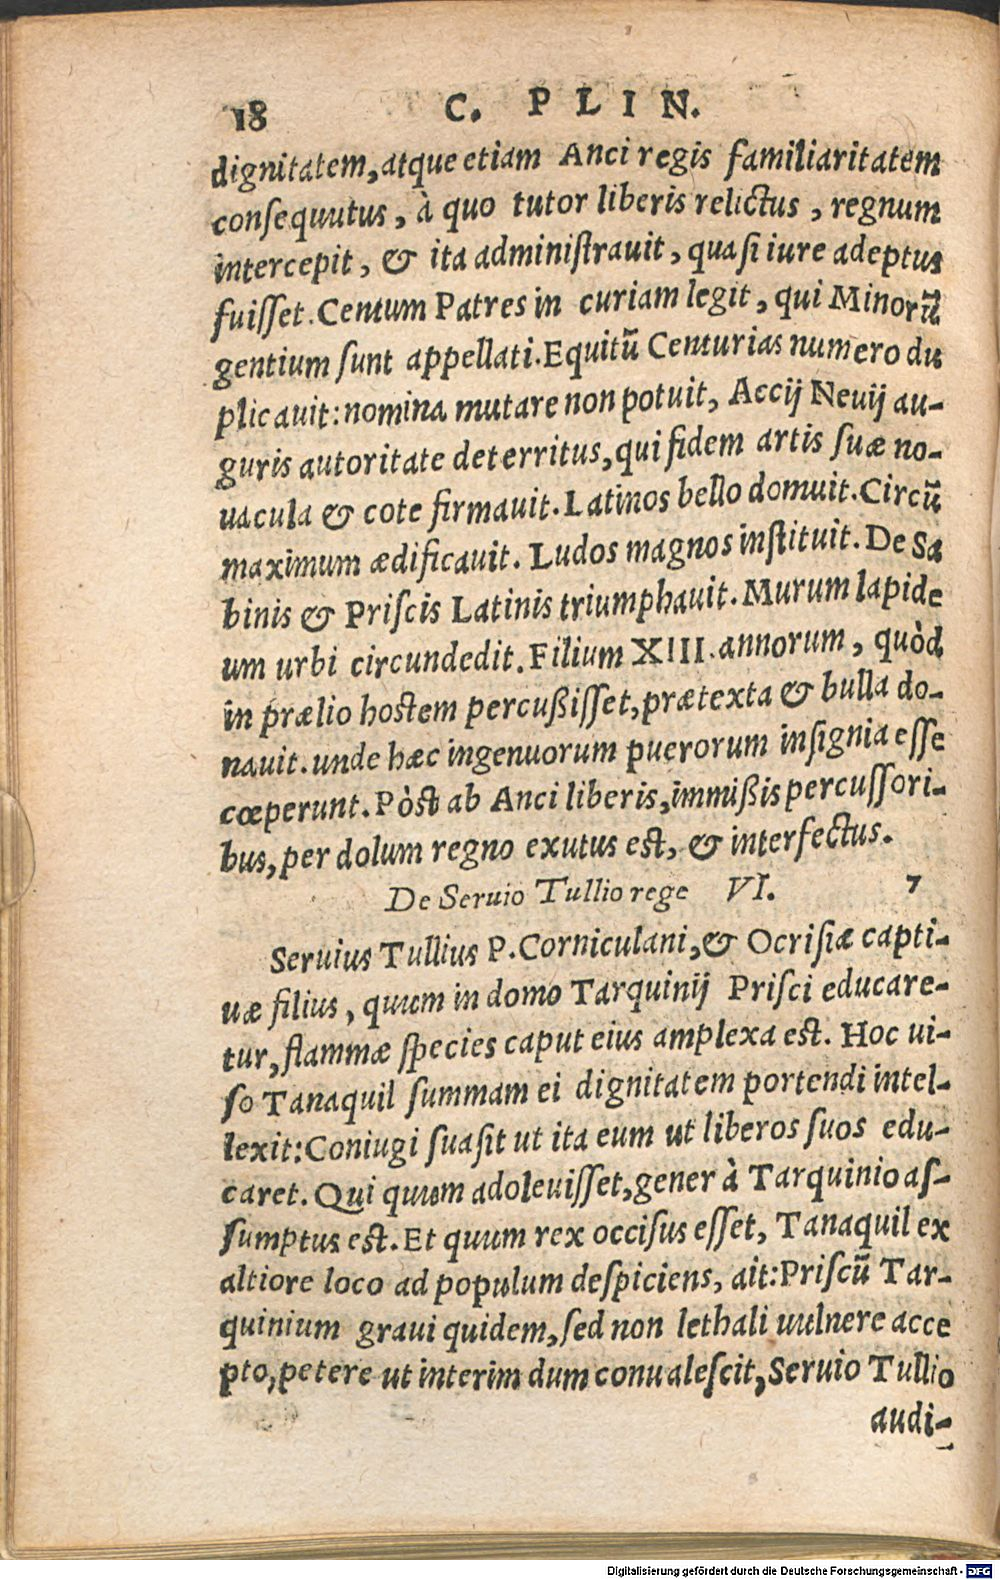 18 C. PLIN.
dignitatem, atque etiam Anci regis familiaritatem
conſequutus, à quo tutor liberis relictus, regnum
intercepit, & ita adminiſtrauit, quaſi iure adeptus
fuiſſet. Centum Patres in curiam legit, qui Minorũ
gentium ſunt appellati. Equitũ Centurias numero du
plicauit: nomina mutare non potuit, Accij Neuij au-
guris autoritate deterritus, qui fidem artis ſuæ no-
uacula & cote firmauit. Latinos bello domuit. Circũ
maximum ædificauit. Ludos magnos inſtituit. De Sa
binis & Priſcis Latinis triumphauit. Murum lapide
um urbi circundedit. Filium XIII. annorum, quòd
in prælio hoſtem percußiſſet, prætexta & bulla do-
nauit. unde hæc ingenuorum puerorum inſignia eſſe
cœperunt. Pòſt ab Anci liberis, immißis percuſſori-
bus, per dolum regno exutus eſt, & interfectus.
De Seruio Tullio rege VI. 7
Seruius Tullius P. Corniculani, & Ocriſiæ capti-
uæ filius, quum in domo Tarquinij Priſci educare-
tur, flammæ ſpecies caput eius amplexa eſt. Hoc ui-
ſo Tanaquil ſummam ei dignitatem portendi intel-
lexit: Coniugi ſuaſit ut ita eum ut liberos ſuos edu-
caret. Qui quum adoleuiſſet, gener à Tarquinio aſ-
ſumptus eſt. Et quum rex occiſus eſſet, Tanaquil ex
altiore loco ad populum deſpiciens, ait: Priſcũ Tar-
quinium graui quidem, ſed non lethali uulnere acce
pto, petere ut interim dum conualeſcit, Seruio Tullio
audi-
Digitalisierung gefördert durch die Deutsche Forschungsgemeinschaft - DFG